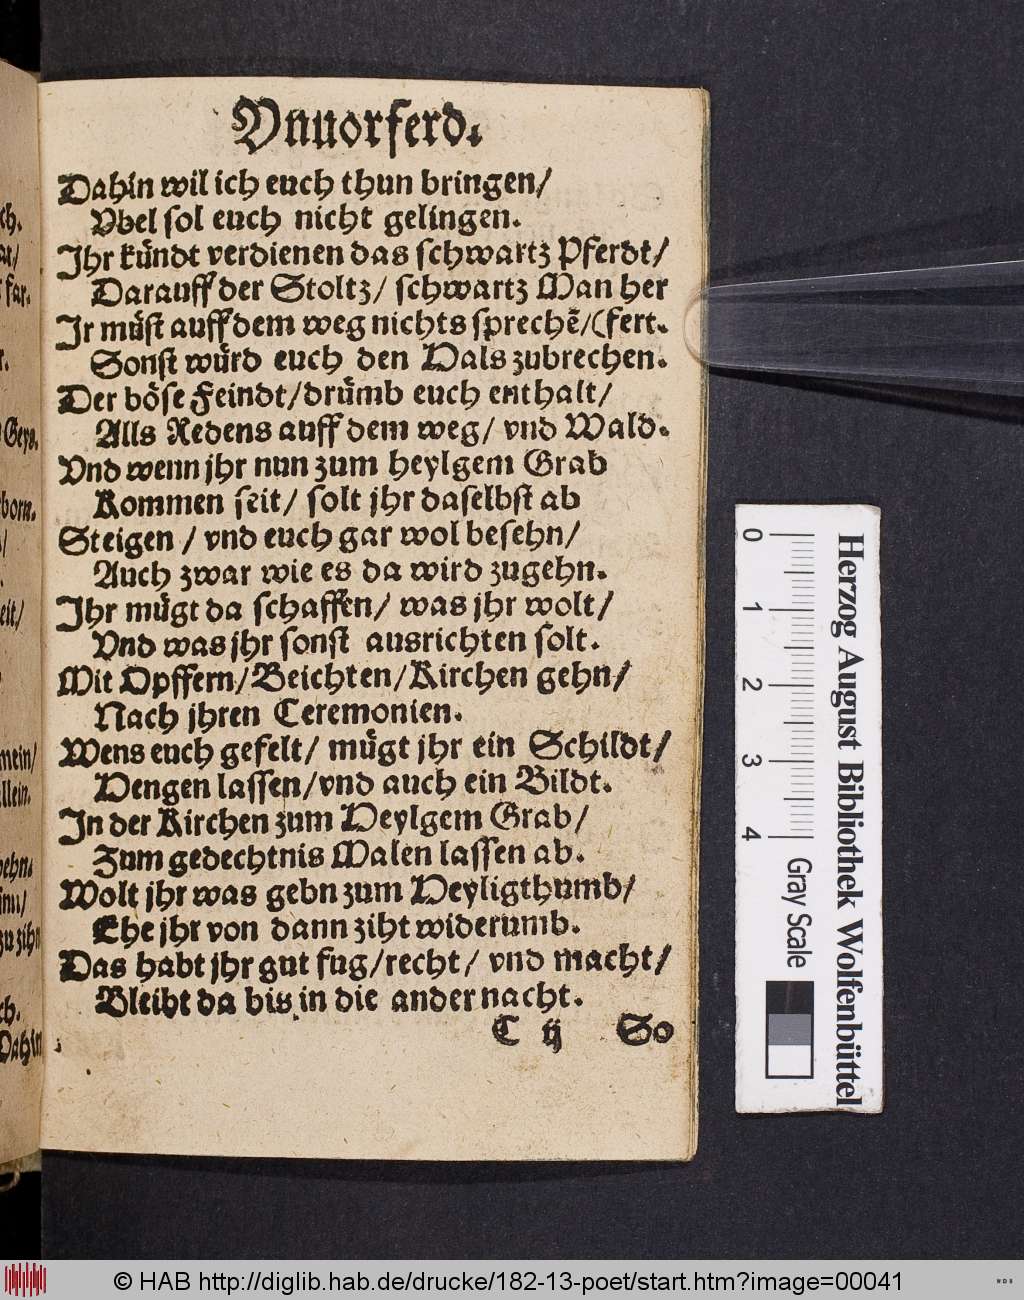 Vnuorferd.
Dahin wil ich euch thun bringen/
Vbel sol euch nicht gelingen.
Ihr kündt verdienen das schwartz Pferdt/
Darauff der Stoltz/ schwartz Man her
Ir müst auff dem weg nichts sprechẽ/(fert.
Sonst würd euch den Hals zubrechen.
Der böse Feindt/drümb euch enthalt/
Alls Redens auff dem weg/ vnd Wald.
Vnd wenn jhr nun zum heylgem Grab
Kommen seit/ solt jhr daselbst ab
Steigen / vnd euch gar wol besehn/
Auch zwar wie es da wird zugehn.
Ihr mügt da schaffen/ was jhr wolt/
Vnd was jhr sonst ausrichten solt.
Mit Opffern/Beichten/Kirchen gehn/
Nach jhren Ceremonien.
Wens euch gefelt/ mügt jhr ein Schildt/
Hengen lassen/vnd auch ein Bildt.
In der Kirchen zum Heylgem Grab/
Zum gedechtnis Malen lassen ab.
Wolt jhr was gebn zum Heyligthumb/
Ehe jhr von dann ziht widerumb.
Das habt jhr gut fug/recht/ vnd macht/
Bleibt da bis in die ander nacht.
C ij So
ch.
far.
Geys.
born.
eit/
mein/
llein.
zu zihn
ch.
Dahin
0 1 2 3 4
Gray Scale
Herzog August Bibliothek Wolfenbüttel
© HAB http://diglib.hab.de/drucke/182-13-poet/start.htm?image=00041
WDB